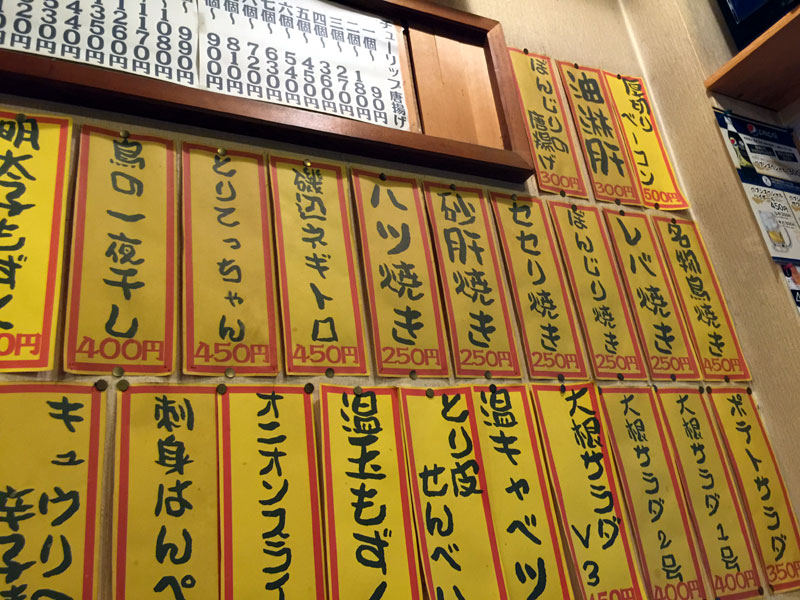 チューリップ唐揚げ
一個〜90円
二個〜180円
三個〜270円
四個〜360円
五個〜450円
六個〜540円
七個〜630円
個〜720円
個〜810円
個〜900円
個〜990円
1080円
1170円
1260円
1350円
厚切りベーコン 500円
油淋肝 300円
ぼんじりの唐揚げ 300円
名物鳥焼き 450円
レバ焼き 250円
ぼんじり焼き 250円
セセリ焼き 250円
砂肝焼き 250円
ハツ焼き 250円
磯辺ネギトロ 450円
とりてっちゃん 450円
鳥の一夜干し 400円
明太子もずく 0円
ポテトサラダ 350円
大根サラダ1号 400円
大根サラダ2号 400円
大根サラダV3 450円
温キャベツ
とり皮せんべい
温玉もずく
オニオンスライ
刺身はんぺ
キュウリ
辛子